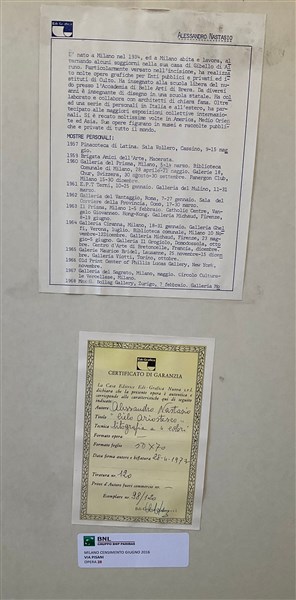 ALESSANDRO NASTASIO
E' nato a Milano nel 1934, ed a Milano abita e lavora, al
ternando alcuni soggiorni nella sua casa di Gibello di A
rona. Particolarmente versato nell'incisione, ha realizza
to molte opere grafiche per Enti pubblici e privati ed i
stituti di Culto. Ha insegnato alla scuola libera del nu-
do presso l'Accademia di Belle Arti di Brera. Da diversi
anni è insegnante di disegno in una scuola statale. Ha col
laborato e collabora con architetti di chiara fama. Oltre
ad una serie di personali in Italia e all'estero, ha par-
tecipato alle maggiori esposizioni collettive internazio-
nali. Si è recato moltissime volte in America, Medio Orien
te ed Asia. Sue opere figurano in musei e raccolte pubbli-
che e private di tutto il mondo.
MOSTRE PERSONALI:
1957 Pinacoteca di Latina. Sala Rollero, Cassino, 8-15 mag
gio.
1959 Brigata Amici dell'Arte, Macerata.
1960 Galleria del Prisma, Milano, marzo. Biblioteca
Comunale di Milano, 28 aprile-22 maggio. Galerie
Chur, Svizzera, 30 agosto-20 settembre. Famegon Club,
Milano 15-30 dicembre.
1961 E.P.T Terni, 10-25 gennaio. Galleria del Mulino, 11-31
1962 Galleria del Vantaggio, Roma, 7-27 gennaio. Sala del
Corriere della Provincia, Como, 17-30 marzo.
1963 Il Prisma, Milano 1-8 febbraio. Catholic Centre, Van-
gelo Giovanneo. Hong-Kong. Galleria Michaud, Firenze,
giugno.
1964 Galleria Cirauna, Milano, 18-31 gennaio. Galleria Ghel
fi, Verona, luglio. Biblioteca comunale, Milano 20 No-
vembre-12Dicembre. Galleria Michaud, Firenze, mag
gio-5 giugno. Galleria Il Grogiolo, Domodossola,
Centro d'Arte di dicembre.
Galerie Maurice Bridel, Lausanne, novembre-15 dicem
bre. Galleria Viotti, Torino, ottobre.
1966 Old Print Center of Phillis Lucas Gallery, New York,
novembre.
1967 Galleria del Sagrato, Milano, maggio. Circolo Cultura-
le Novembre.
1968 Gallery, Zurigo, febbraio. Galleria
CERTIFICATO DI GARANZIA
La Casa Editrice Ede Grafica Nuova s.r.l.
dichiara che la presente opera è autentica e
corrisponde alle caratteristiche qui di seguito
indicate:
Autore Alessandro Nastasio
Titolo "Cielo Ariostesco"
Tecnica litografia a 4 colori
Formato opera —
Formato foglio 50 x 70
Data firma autore e bifatura 28-6-1974
Tiratura nr. 120
Prove d'Autore fuori commercio nr. —
Esemplare nr. 98/120
BNL
GRUPPO BNP PARIBAS
MILANO CENSIMENTO GIUGNO 2016
VIA PISANI
OPERA 20